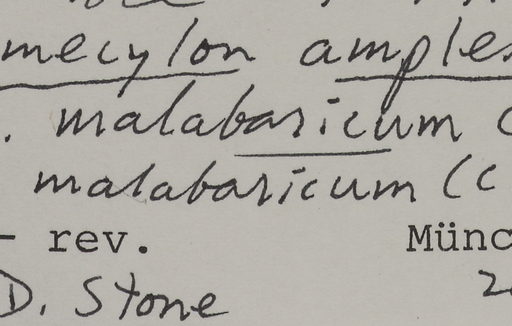 mecylon amples
. malabaricum C
malabaricum (C
- rev. Münc
D. Stone 20